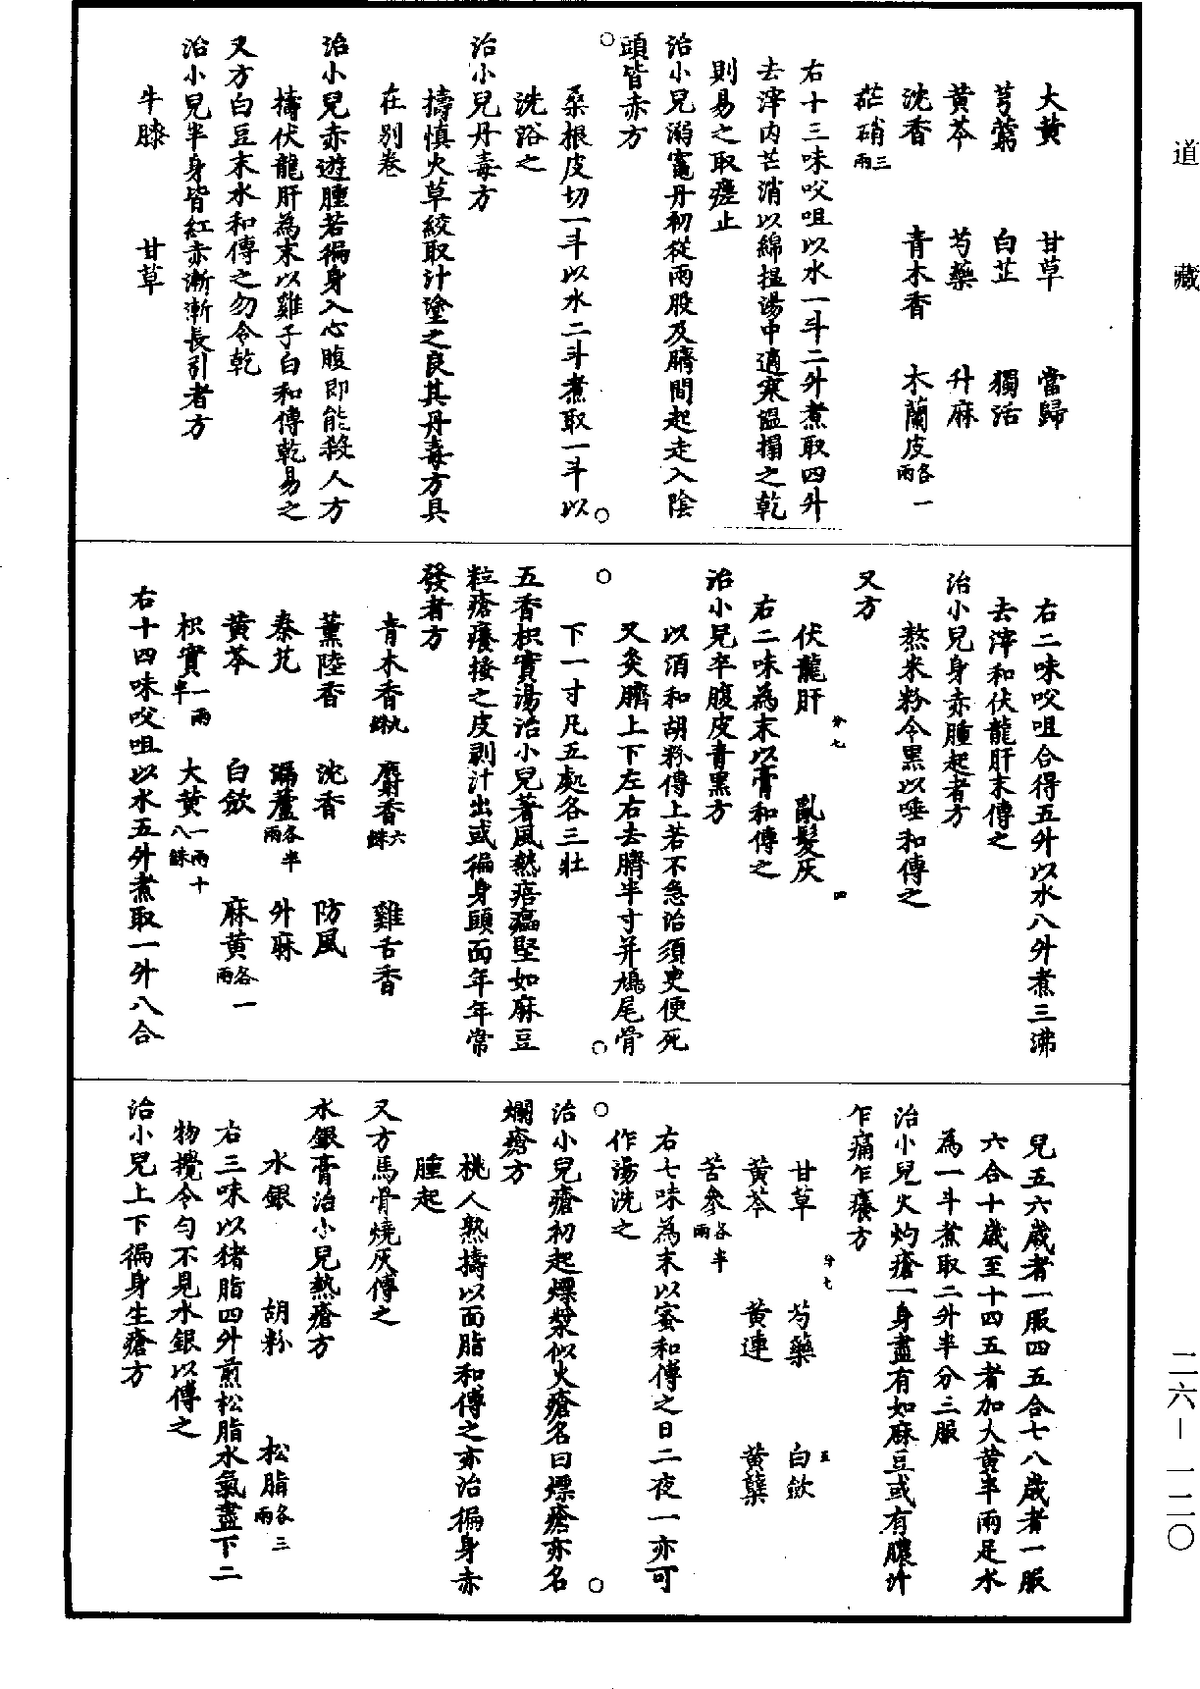 道藏
大黄　甘草　當歸
芎藭　白芷　獨活
黄芩　芍藥　升麻
沈香　青木香　木蘭皮各一兩
芒硝三兩
右十三味㕮咀以水一斗二升煮取四升
去滓内芒消以綿揾湯中適寒温搨之乾
則易之取瘥止
治小兒溺竈丹初從兩股及臍間起走入陰
頭皆赤方
桑根皮切一斗以水二斗煮取一斗以
洗浴之
治小兒丹毒方
擣慎火草絞取汁塗之良其丹毒方具
在别卷
治小兒赤遊腫若徧身入心腹即能殺人方
擣伏龍肝為末以雞子白和傅乾易之
又方白豆末水和傅之勿令乾
治小兒半身皆紅赤漸漸長引者方
牛膝　甘草
右二味㕮咀合得五升以水八升煮三沸
去滓和伏龍肝末傅之
治小兒身赤腫起者方
熬米粉令黑以唾和傅之
又方
伏龍肝　亂髮灰
分七　四
右二味為末以膏和傅之
治小兒卒腹皮青黑方
以酒和胡粉傅上若不急治須臾便死
又灸臍上下左右去臍半寸并鳩尾骨
下一寸凡五處各三壯
五香枳實湯治小兒著風熱㾦㿔堅如麻豆
粒瘡癢搔之皮剥汁出或徧身頭面年年常
發者方
青木香九銖　麝香六銖　雞舌香
薰陸香　沈香　防風
秦艽　漏蘆各半兩　升麻
黄芩　白歛　麻黄各一兩
枳實一兩半　大黄一兩十八銖
右十四味㕮咀以水五升煮取一升八合
兒五六歲者一服四五合七八歲者一服
六合十歲至十四五者加大黄半兩足水
為一斗煮取二升半分三服
治小兒火灼瘡一身盡有如麻豆或有膿汁
乍痛乍癢方
甘草　芍藥　白歛
分七　五
黄芩　黄連　黄蘗
苦參各半兩
右七味為末以蜜和傅之日二夜一亦可
作湯洗之
治小兒瘡初起熛漿似火瘡名曰熛瘡亦名
爛瘡方
桃人熟擣以面脂和傅之亦治徧身赤
腫起
又方馬骨燒灰傅之
水銀膏治小兒熱瘡方
水銀　胡粉　松脂各三兩
右三味以猪脂四升煎松脂水氣盡下二
物攪令匀不見水銀以傅之
治小兒上下徧身生瘡方
二六—一二〇